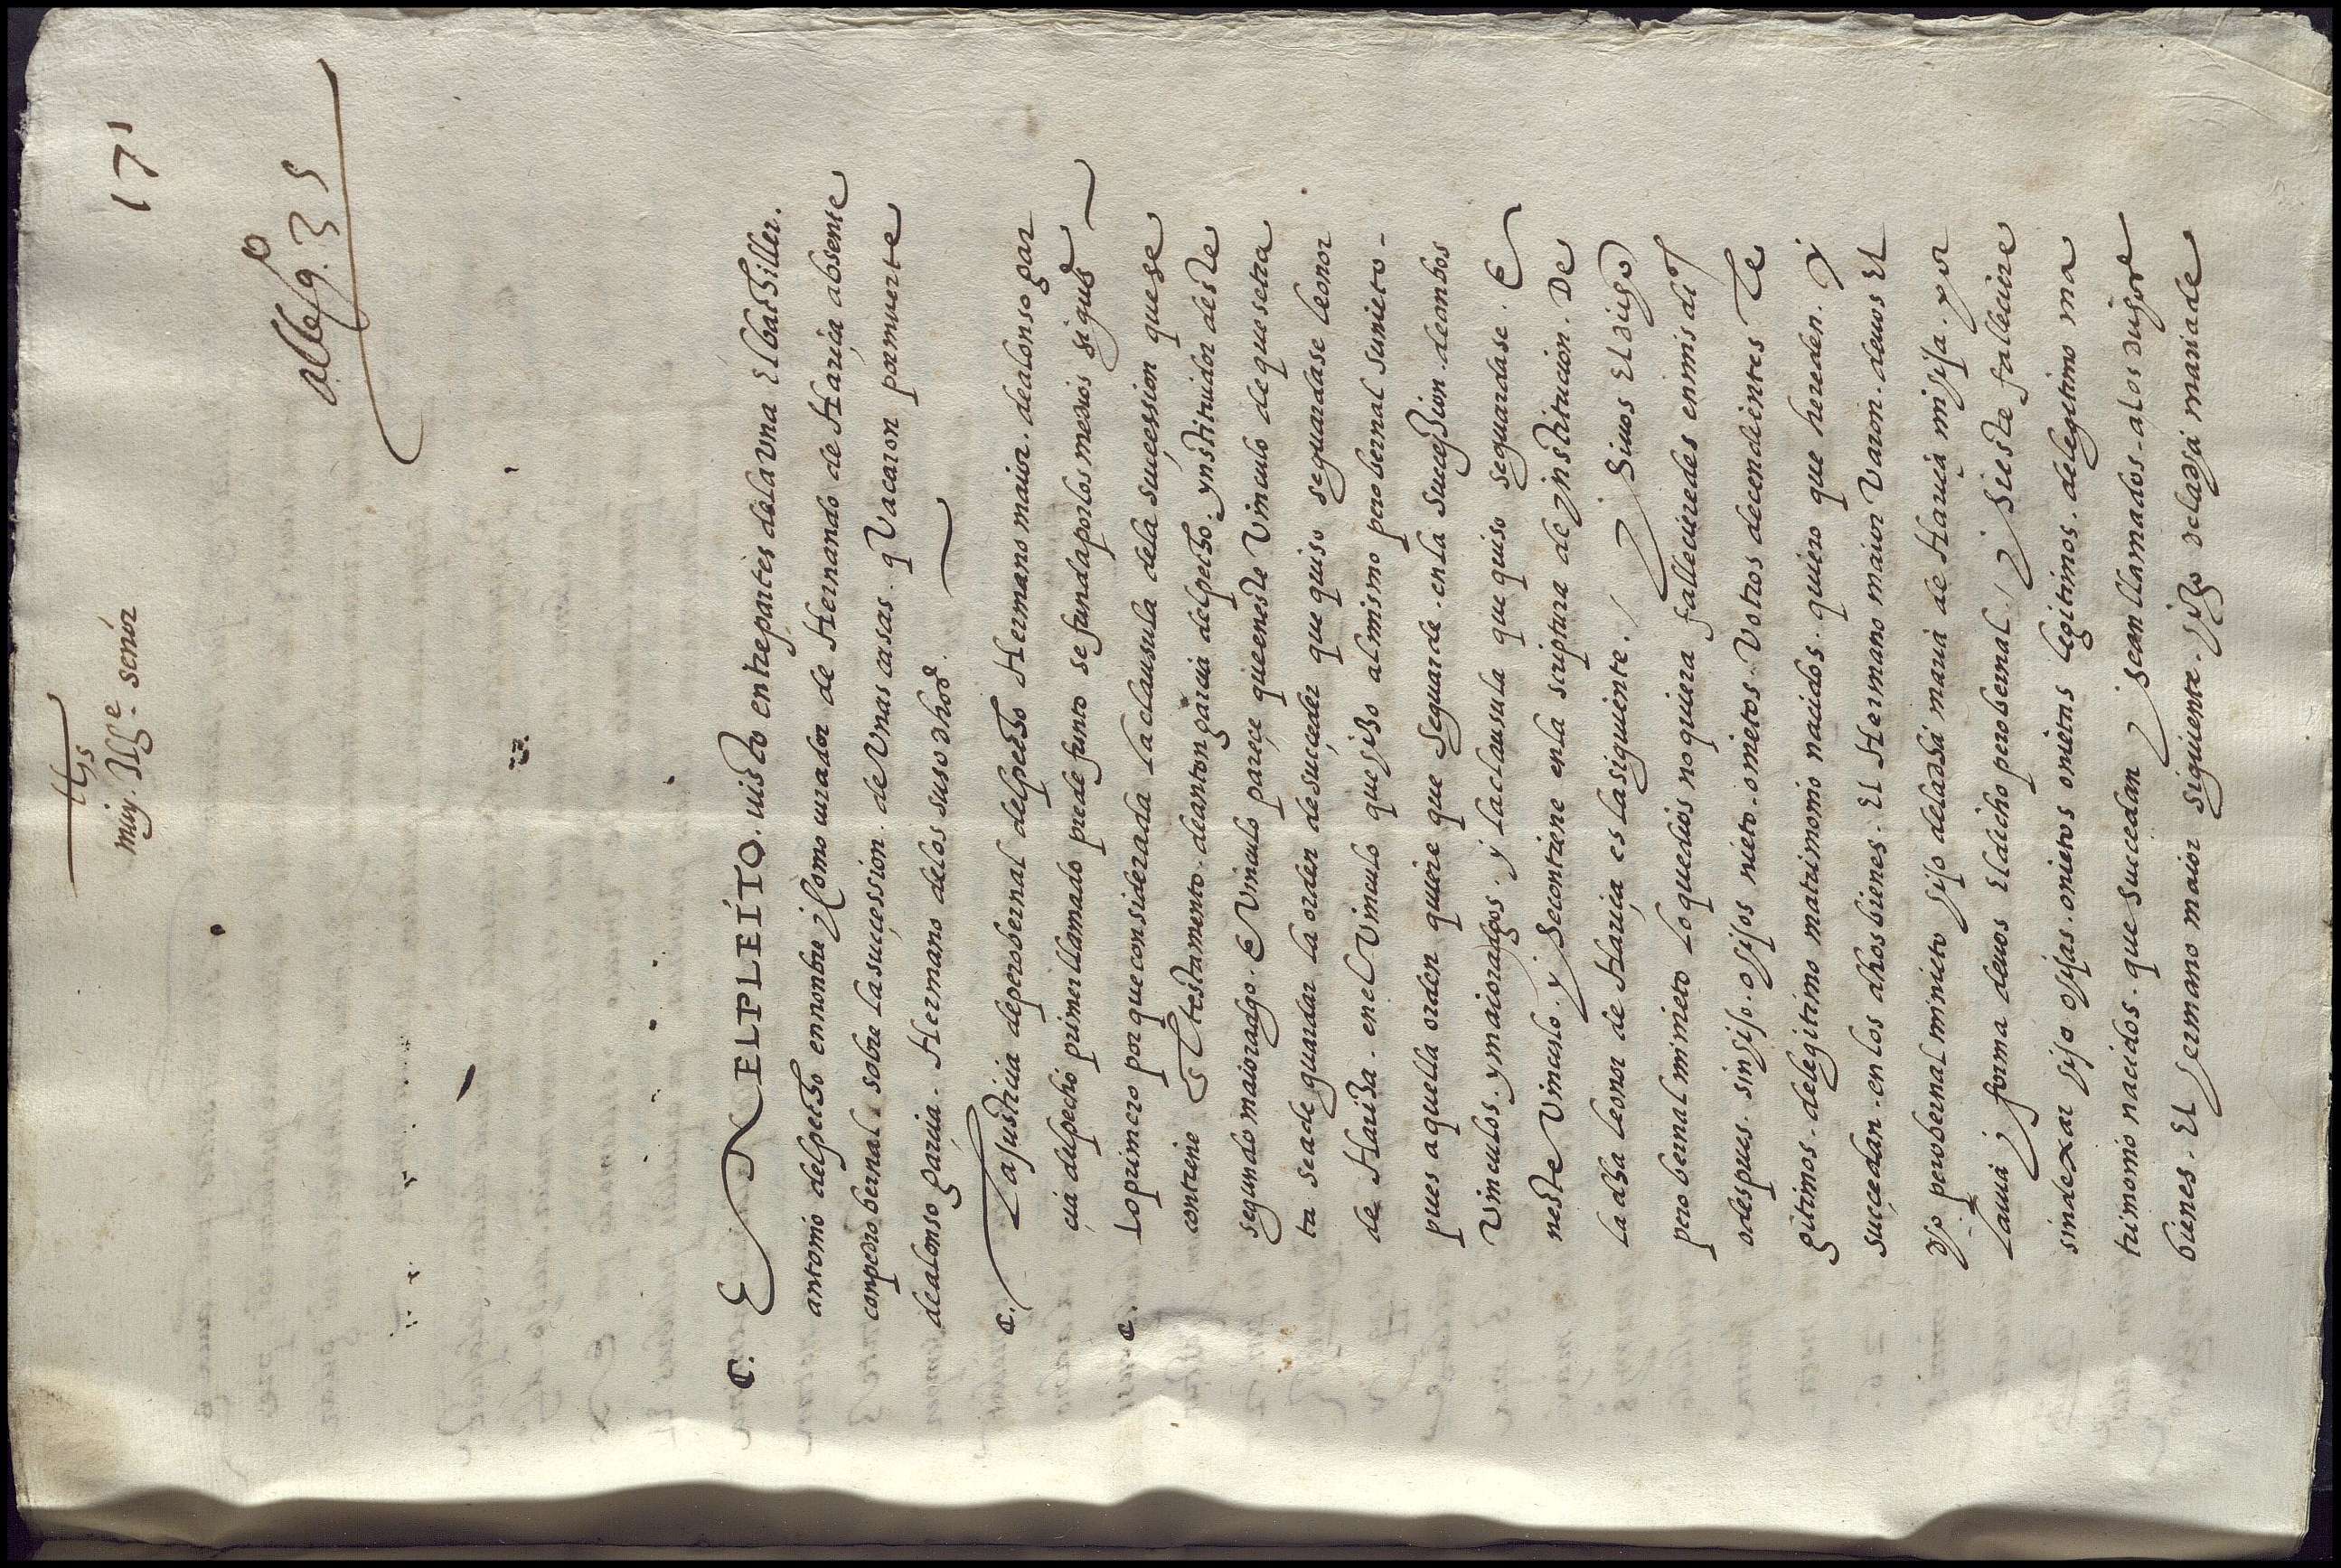 Jhs
muy. Illᵉ. señor
171
alleg. 35
C. EN EL PLEITO. visto entre partes de la vna El bachiller.
antonio del pecho en nonbre y Como curador de Hernando de Hariça absente
con pedro bernal. sobre la suçession. de Vnas casas. q Vacaron por muerte
de alonso garçia. Hermano de los suso dhos.
C. La justiçia de pero bernal del pecho Hermano maior. de alonso gar
çia del pecho primer llamado pre defunto se funda por los medios sigᵉˢ
C. Lo primero por que considerada la clausula de la suçession que se
contiene el testamento. de anton garçia del pecho. ynstituidor deste
segundo maioradgo. E Vinculo pareçe que en este Vinculo de que se tra
ta se a de guardar la orden de suçeder que quiso se guardase leonor
de Hariza. en el Vinculo que hizo al mismo pero bernal su nieto -
pues aquella orden quiere que se guarde. en la suçesion. de ambos
Vinculos. y maioradgos. y la clausula que quiso se guardase. E
neste Vinculo. y se contiene en la scriptura de ynstitucion. De
la dha leonor de Hariça es la siguiente. / y si vos El digho
pero bernal mi nieto lo que dios no quiera falleçieredes en mis dias
o despues. sin hijo. o hijos nieto. o nietos. V otros decendientes Le
gitimos. de legitimo matrimonio naçidos. quiero que hereden. Y
suçedan. en los dhos bienes. El Hermano maior Varon. de vos El
dho pero bernal mi nieto hijo de la dha maria de Hariça mi hija. por
la via y forma de vos El dicho pero bernal. / y si este falleçiere
sin dexar hijo o hijas. o nietos o nietas legitimos. de legitimo ma
trimonio naçidos. que suçedan y sean llamados. a los dichos
bienes. El hermano maior siguiente. hijo de la dha maria de